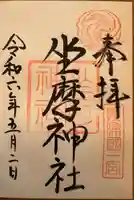 奉拝
坐摩神社
令和六年五月二日